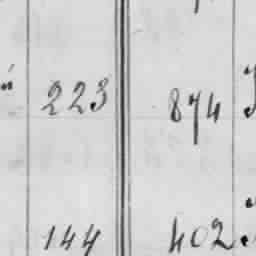 223 874
144 402